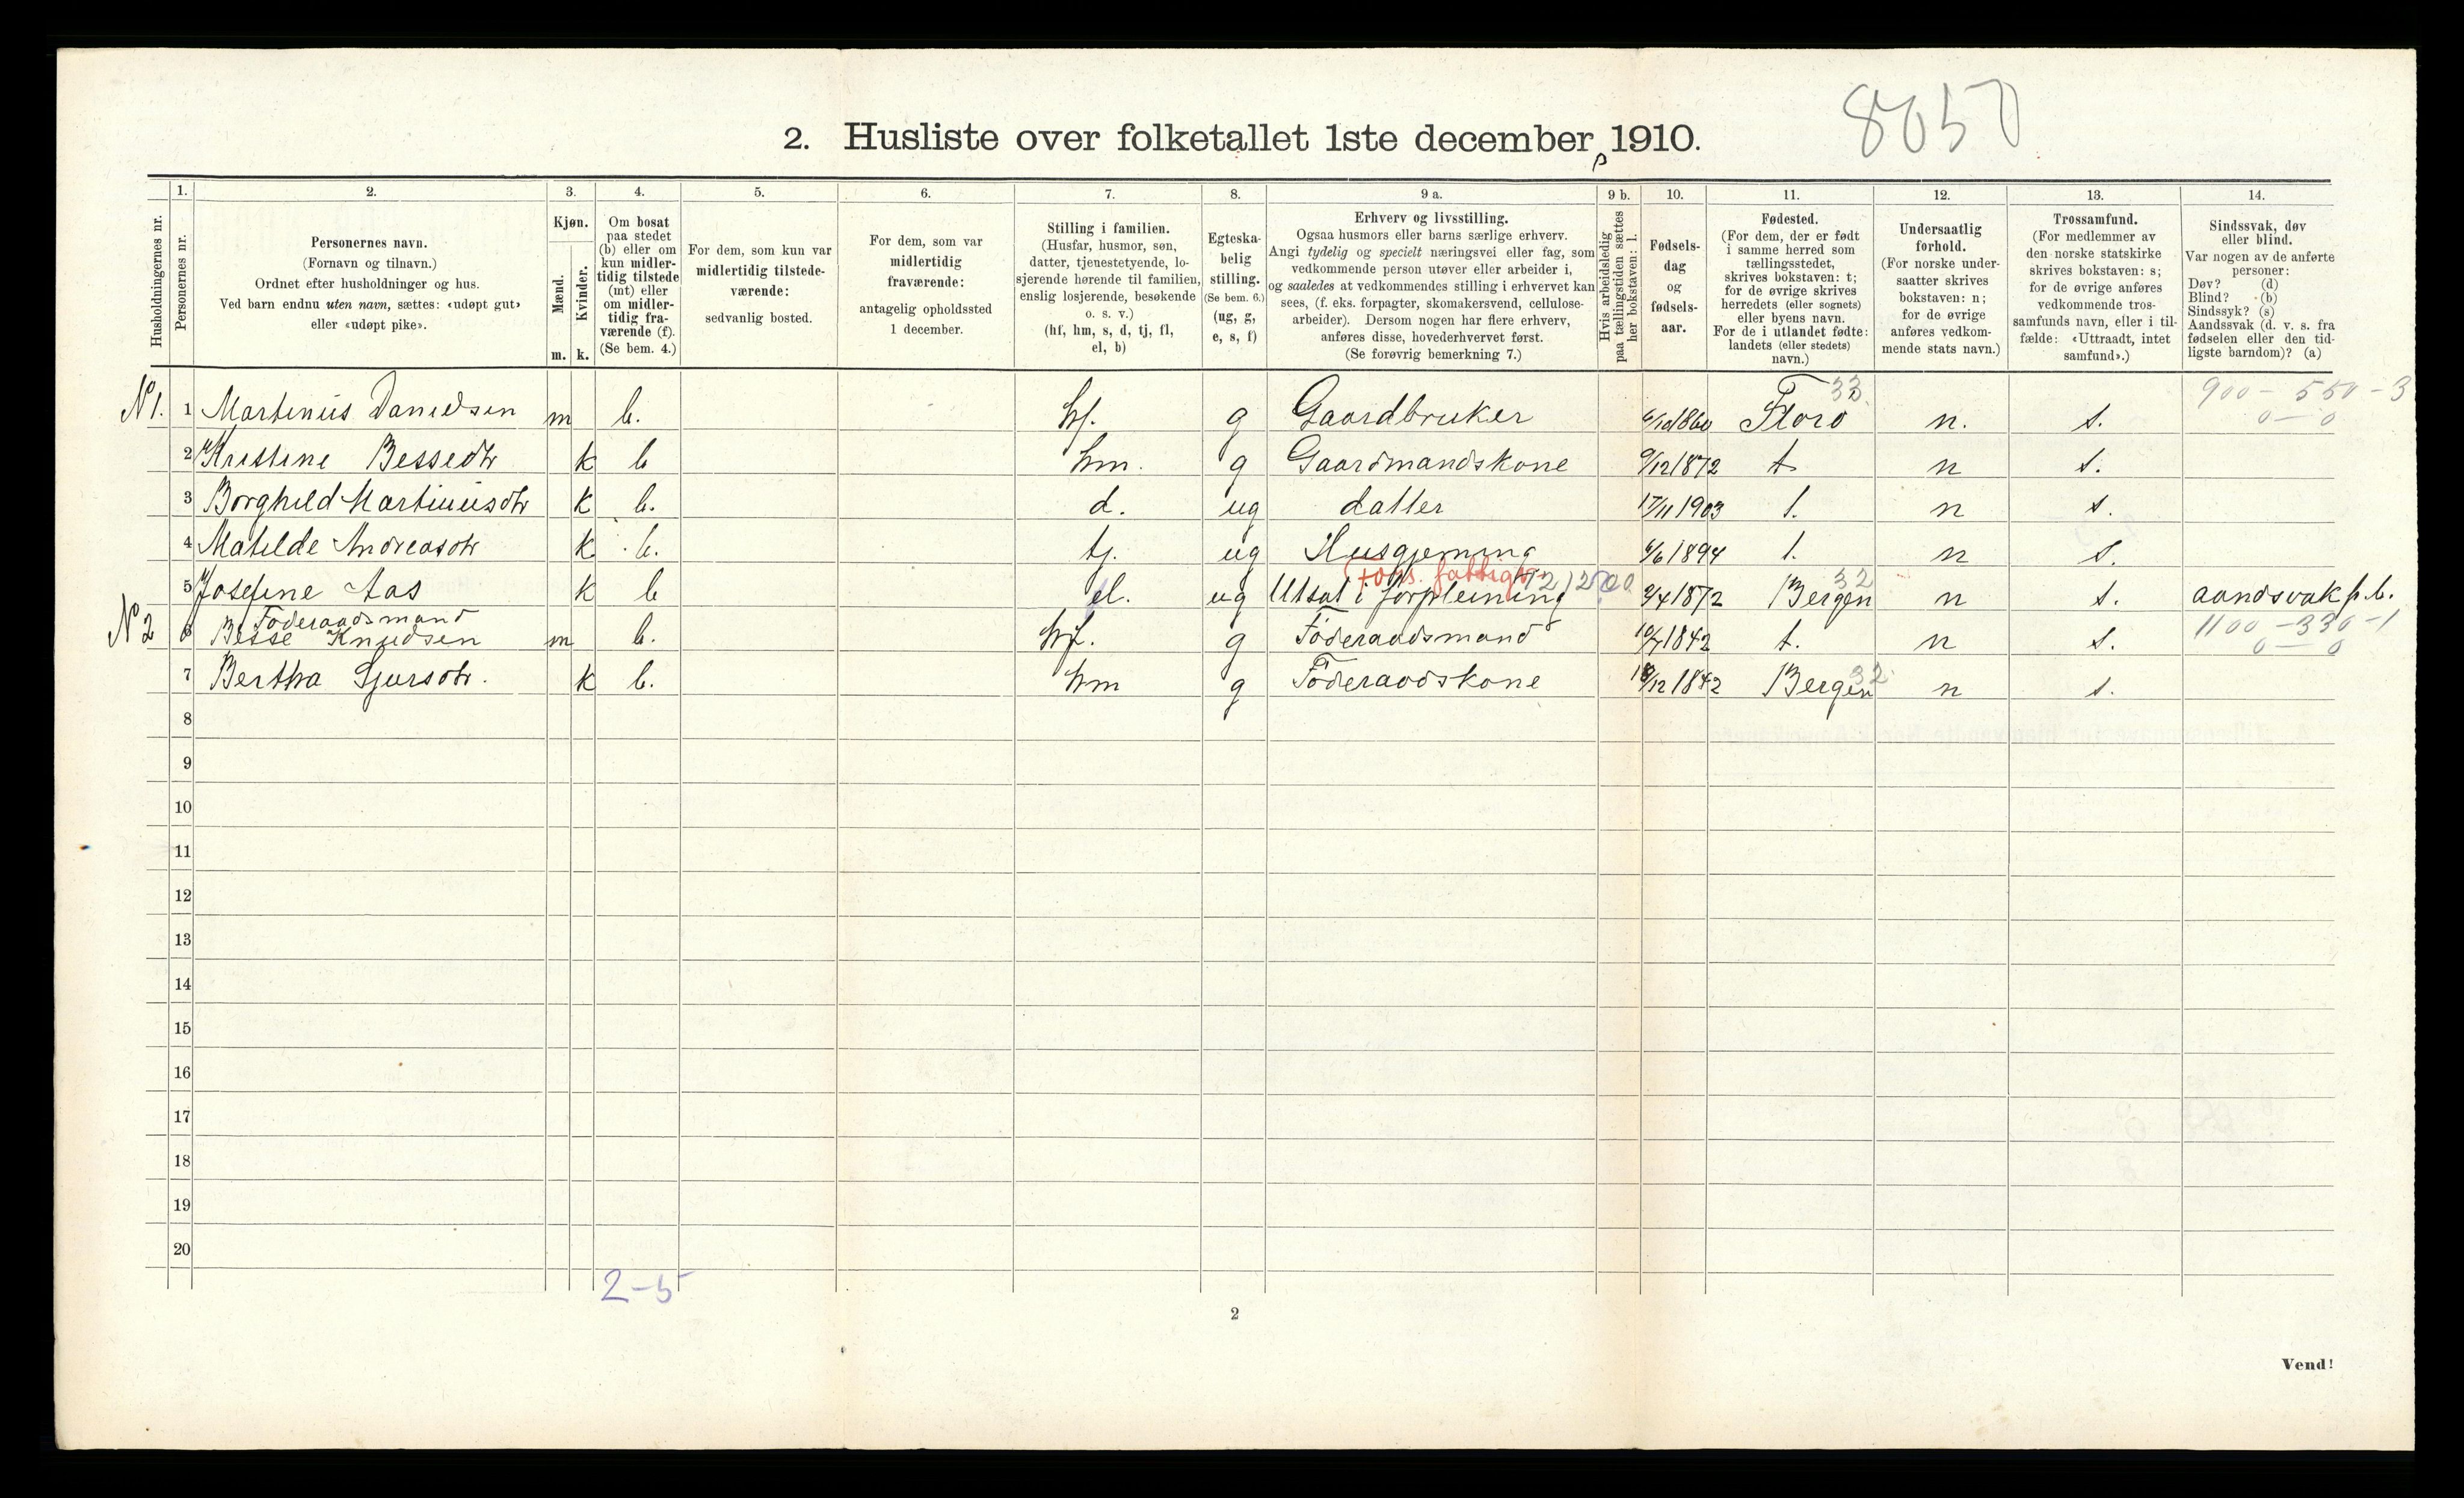 8050
2. Husliste over folketallet 1ste december 1910.
Husholdningernes nr.
1.
Personernes nr.
2.
Personernes navn.
(Fornavn og tilnavn.)
Ordnet efter husholdninger og hus.
Ved barn endnu uten navn, sættes: «udøpt gut»
eller «udøpt pike».
3.
Kjøn.
Mænd.
Kvinder.
m. k.
4.
Om bosat
paa stedet
(b) eller om
kun midler-
tidig tilstede
(mt) eller
om midler-
tidig fra-
værende (f).
(Se bem. 4.)
5.
For dem, som kun var
midlertidig tilstede-
værende:
sedvanlig bosted.
6.
For dem, som var
midlertidig
fraværende:
antagelig opholdssted
1 december.
7.
Stilling i familien.
(Husfar, husmor, søn,
datter, tjenestetyende, lo-
sjerende hørende til familien,
enslig losjerende, besøkende
o. s. v.)
(hf, hm, s, d, tj, fl,
el, b)
8.
Egteska-
belig
stilling.
(Se bem. 6.)
(ug, g,
e, s, f)
9 a.
Erhverv og livsstilling.
Ogsaa husmors eller barns særlige erhverv.
Angi tydelig og specielt næringsvei eller fag, som
vedkommende person utøver eller arbeider i,
og saaledes at vedkommendes stilling i erhvervet kan
sees, (f. eks. forpagter, skomakersvend, cellulose-
arbeider). Dersom nogen har flere erhverv,
anføres disse, hovederhvervet først.
(Se forøvrig bemerkning 7.)
9 b.
Hvis arbeidsledig
paa tællingstiden sættes
her bokstaven: l.
10.
Fødsels-
dag
og
fødsels-
aar.
11.
Fødested.
(For dem, der er født
i samme herred som
tællingsstedet,
skrives bokstaven: t;
for de øvrige skrives
herredets (eller sognets)
eller byens navn.
For de i utlandet fødte:
landets (eller stedets)
navn.)
12.
Undersaatlig
forhold.
(For norske under-
saatter skrives
bokstaven: n;
for de øvrige
anføres vedkom-
mende stats navn.)
13.
Trossamfund.
(For medlemmer av
den norske statskirke
skrives bokstaven: s;
for de øvrige anføres
vedkommende tros-
samfunds navn, eller i til-
fælde: «Uttraadt, intet
samfund».)
14.
Sindssvak, døv
eller blind.
Var nogen av de anførte
personer:
Døv? (d)
Blind? (b)
Sindssyk? (s)
Aandssvak (d. v. s. fra
fødselen eller den tid-
ligste barndom)? (a)
33 900 - 550 - 3
N1. 1 Martinus Danielsen m b. hf. g Gaardbruker 6/10 1860 Floro n. s. 0 - 0
2 Kristine Bessedtr k b hm. g Gaardmandskone 9/12 1872 t n s.
3 Borghild Martinusdtr k b. d. ug datter 17/11 1903 t. n s.
4 Matilde Andreasdtr k b. tj. ug Husgjerning 6/6 1894 t. n s.
32
5 Josefine Aas k b el. ug Utsat i forpleining 9/4 1872 Bergen n s. aandsvak f. b.
Föderaadsmand 1100 - 330 - 1
N2 6 Besse Knudsen m b. hf. g Föderaadsmand 10/7 1842 t. n s. 0 - 0
7 Bertha Sjursdtr. k b. hm g Föderaadskone 18/12 1842 Bergen 32 n s.
8
9
10
11
12
13
14
15
16
17
18
19
20
2-5
2
Vend!